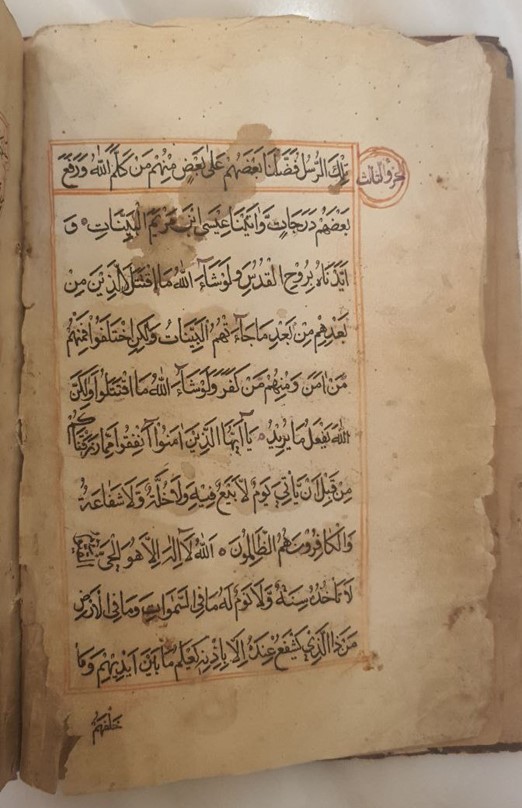 تِلْكَ الرُّسُلُ فَضَّلْنَا بَعْضَهُمْ عَلَى بَعْضٍ مِنْهُمْ مَنْ كَلَّمَ اللهُ وَرَفَعَ
الجزو الثالث
بَعْضَهُمْ دَرَجَاتٍ وَاتَيْنَا عِيسَى ابْنَ مَرْيَمَ الْبَيِّنَاتِ وَ
اَيَّدْنَاهُ بِرُوحِ الْقُدُسِ وَلَوْ شَآءَ اللهُ مَا اقْتَتَلَ الَّذِينَ مِنْ
بَعْدِهِمْ مِنْ بَعْدِ مَا جَآءَتْهُمُ الْبَيِّنَاتُ وَلَكِنِ اخْتَلَفُوا فَمِنْهُمْ
مَنْ اٰمَنَ وَمِنْهُمْ مَنْ كَفَرَ وَلَوْ شَآءَ اللهُ مَا اقْتَتَلُوا وَلَكِنَّ
اللهَ يَفْعَلُ مَا يُرِيدُ يَآ اَيُّهَا الَّذِينَ اٰمَنُوا اَنْفِقُوا مِمَّا رَزَقْنَاكُمْ
مِنْ قَبْلِ اَنْ يَأْتِيَ يَوْمٌ لَا بَيْعٌ فِيهِ وَلَا خُلَّةٌ وَلَا شَفَاعَةٌ
وَالْكَافِرُونَ هُمُ الظَّالِمُونَ اللهُ لَآ اِلَهَ اِلَّا هُوَ الْحَيُّ الْقَيُّومُ
لَا تَأْخُذُهُ سِنَةٌ وَلَا نَوْمٌ لَهُ مَا فِي السَّمٰوَاتِ وَمَا فِي الْاَرْضِ
مَنْ ذَا الَّذِي يَشْفَعُ عِنْدَهُ اِلَّا بِاِذْنِهِ يَعْلَمُ مَا بَيْنَ اَيْدِيهِمْ وَمَا
خَلْفَهُمْ